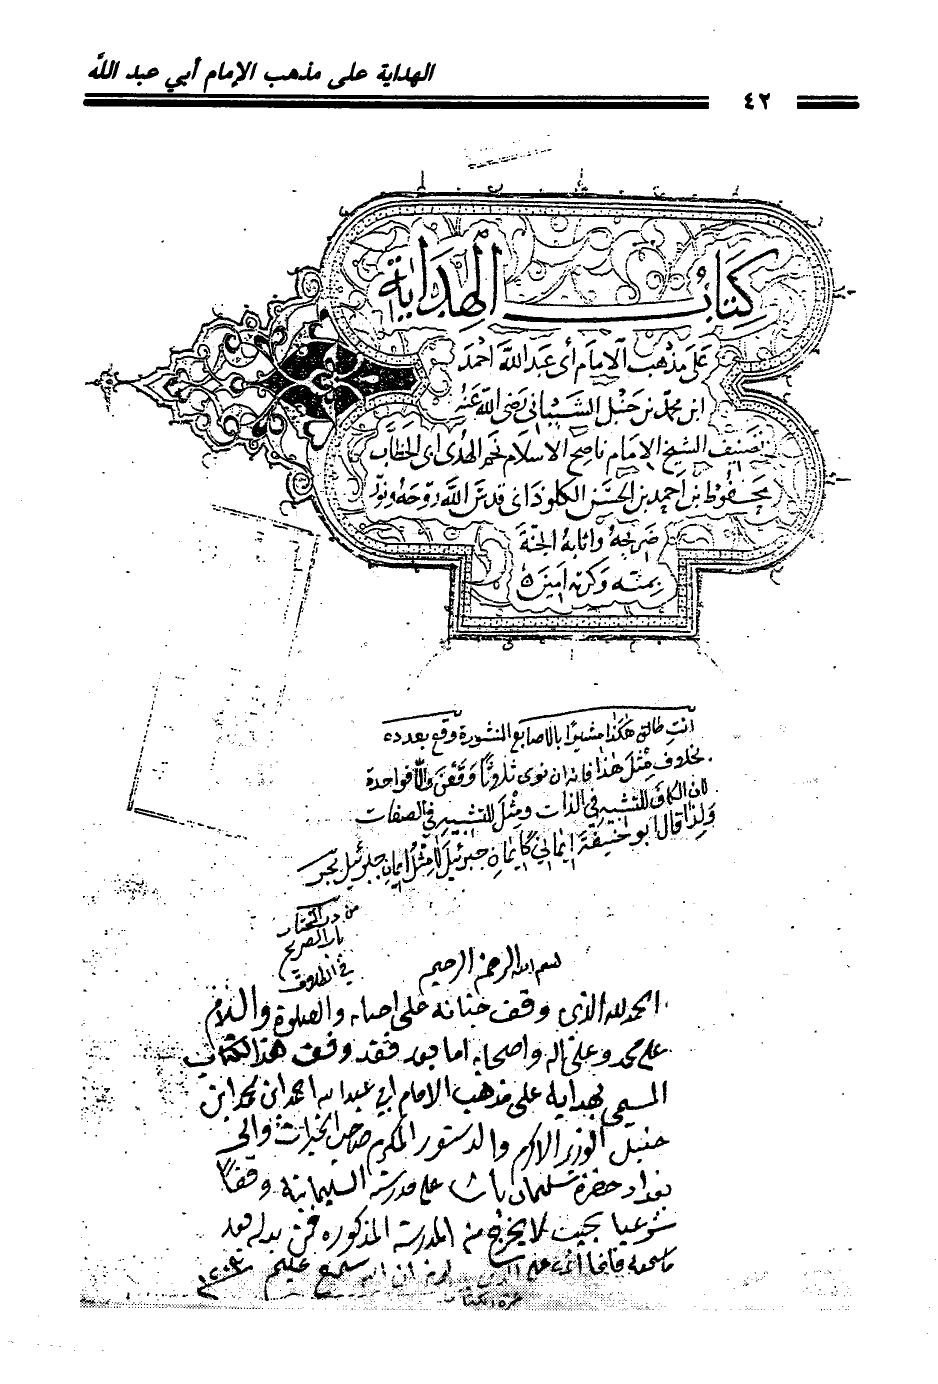 الهداية على مذهب الإمام أبي عبد الله
٤٢
كتاب الهداية
على مذهب الامام أبي عبد الله احمد
ابن محمد بن حنبل الشيباني رضي الله عنه
تصنيف الشيخ الامام ناصح الاسلام نجم الهدى ابى الخطاب
محفوظ بن احمد بن الحسن الكلوذانى قدس الله روحه ونور
ضريحه واثابه الجنة
بمنه وكرمه امين
انت طالق هكذا مشيرا بالاصابع المنشورة وقع بعدده
بخلاف مثل هذا فانه ان نوى ثلاثا وقعن والا فواحدة
لان الكاف للتشبيه في الذات ومثل للتشبيه في الصفات
ولذا قال ابو حنيفة ايماني كايمان جبرئيل لا مثل ايمان جبرئيل بحر
من در المختار
باب الصريح
في الطلاق
بسم الله الرحمن الرحيم
الحمد لله الذي وقف جنانه على احبابه والصلوة والسلام
على محمد وعلى اله واصحابه اما بعد فقد وقف هذا الكتاب
المسمى بهداية على مذهب الامام ابي عبد الله احمد ابن محمد ابن
حنبل الوزير الاكرم والدستور المكرم صاحب الخيرات والي
بغداد حضرة سليمان باشا على مدرسة السليمانية وقفا
شرعيا بحيث لا يخرج من المدرسة المذكوره فمن بدله بعد
ما سمعه فانما اثمه على الذين يبدلونه ان الله سميع عليم